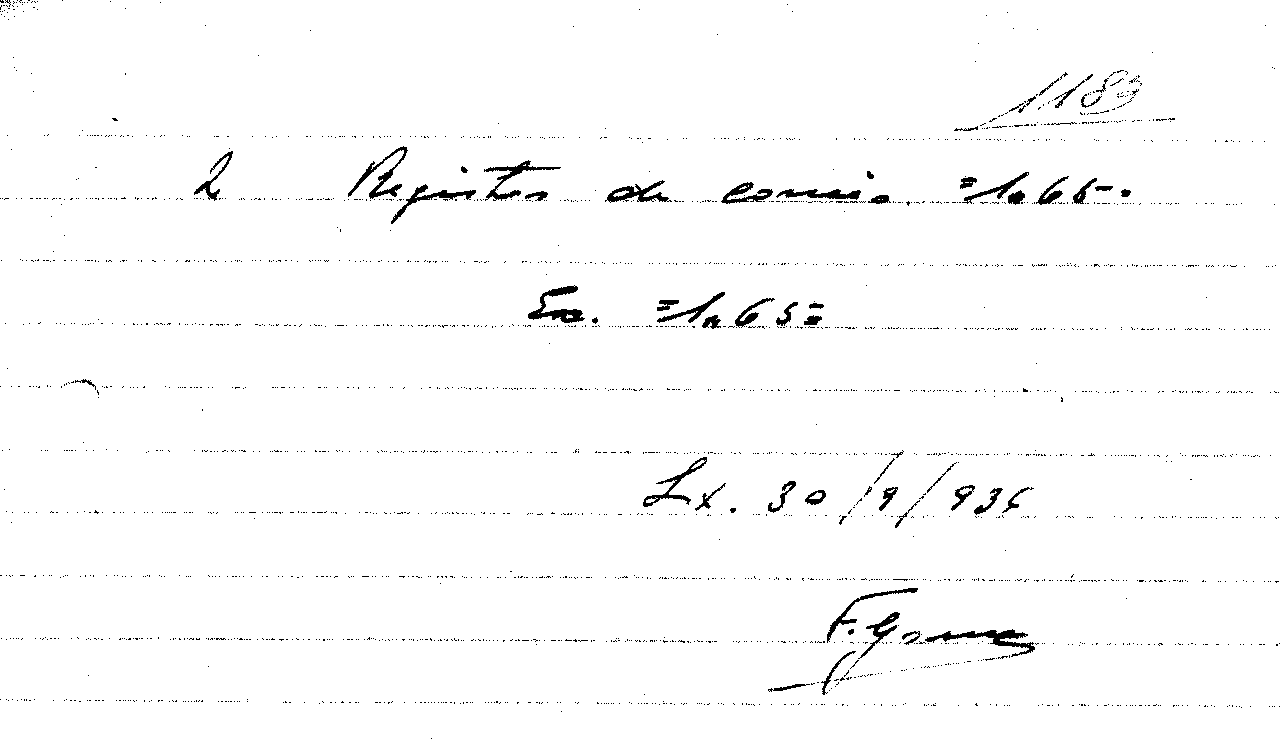 1183
2 Registos de correio =1$65=
Esc. =1$65=
Lx. 30/9/936
F. Gomes